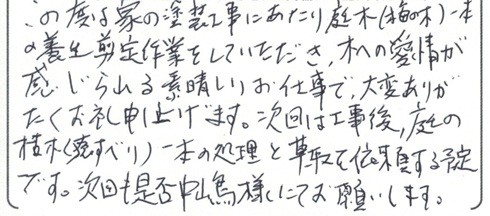 この度は家の塗装工事にあたり庭木(梅の木)一本
の養生剪定作業をしていただき、木への愛情が
感じられる素晴しいお仕事で、大変ありが
たくお礼申し上げます。次回は工事後、庭の
植木(猿すべり)一本の処理と草取を依頼する予定
です。次回も是非中島様にてお願いします。